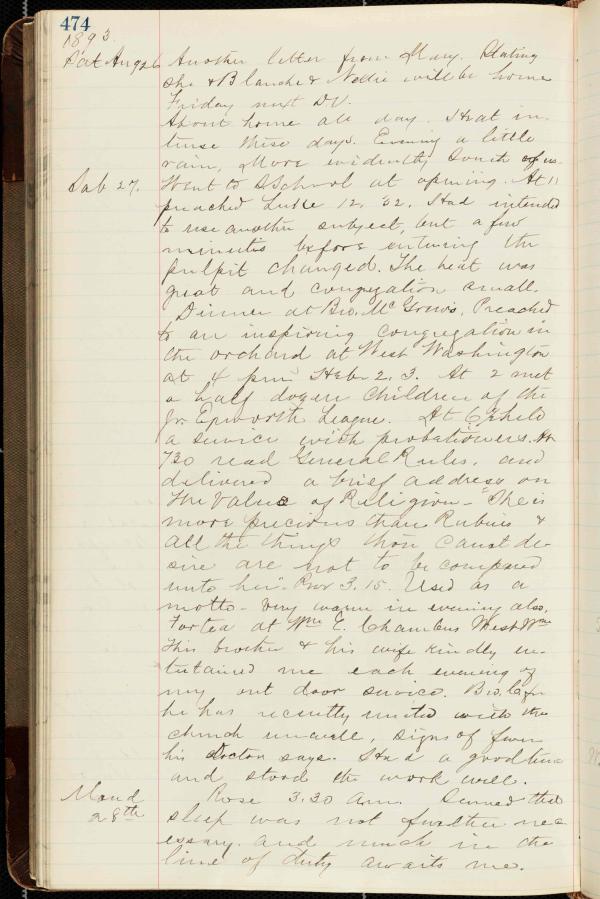 474
1893.
Sat Aug 26 Another letter from Mary. Stating
she & Blanche & Nellie will be home
Friday next DV.
About home all day. Heat in-
tense these days. Evening a little
rain, More evidently South of us.
Sab 27. Went to SSchool at opening. At 11
preached Luke 12, 32. Had intended
to use another subject, but a few
minutes before entering the
pulpit changed. The heat was
great and congregation small.
Dinner at Bro. McGrew's, Preached
to an inspiring congregation in
the orchard at West Washington
at 4 pm Heb. 2, 3. At 2 met
a half dozen children of the
Jr. Epworth League. At 6 held
a service with probationers. At
730 read General Rules, and
delivered a brief address on
The Value of Religion - "She is
more precious than Rubies &
all the things thou canst de-
sire are not to be compared
unto her" Prov 3.15. Used as a
motto - Very warm in evening also.
at Wm E. Chambers West Wn
This brother & his wife kindly en-
tertained me each evening of
my out door service. Bro.
he has recently united with the
church unwell, signs of fever
his Doctor says. Had a good time
and stood the work well.
Mond 28th Rose 3.30 am. Seemed that
sleep was not further nec
essary. and much in the
line of duty awaits me.